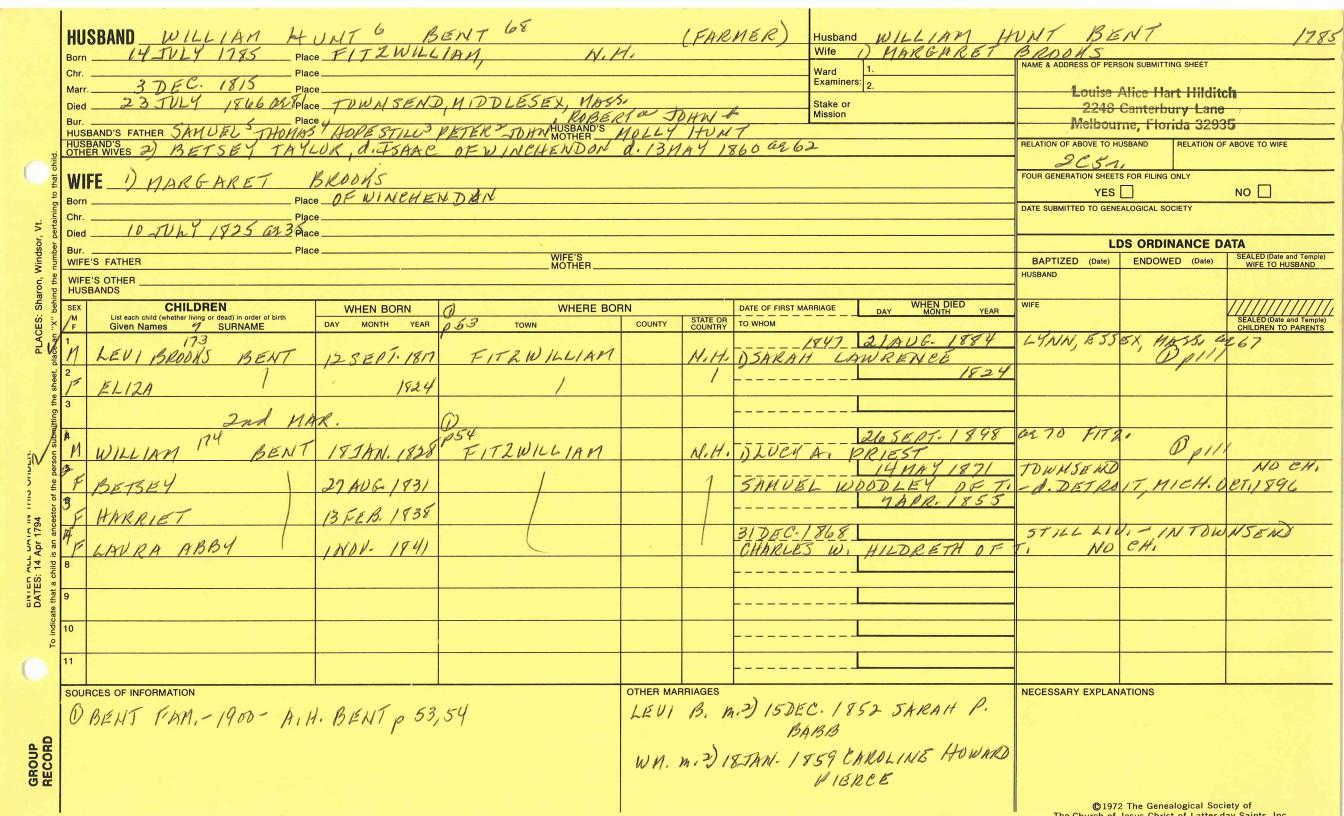 HUSBAND WILLIAM HUNT 6 BENT 68 (FARMER)
Born 14 JULY 1785 Place FITZWILLIAM, N.H.
Chr. Place
Marr. 3 DEC. 1815 Place
Died 23 JULY 1866 ae 81 Place TOWNSEND, MIDDLESEX, MASS.
Bur. Place ROBERT JOHN
HUSBAND'S FATHER SAMUEL 5 THOMAS 4 HOPESTILL 3 PETER 2 JOHN HUSBAND'S MOTHER MOLLY HUNT
HUSBAND'S OTHER WIVES 2) BETSEY TAYLOR, d. ISAAC OF WINCHENDON d. 13 MAY 1860 ae 62
Husband WILLIAM HUNT BENT 1785
Wife 1) MARGARET BROOKS
Ward Examiners: 1.
2.
Stake or Mission
NAME & ADDRESS OF PERSON SUBMITTING SHEET
Louise Alice Hart Hilditch
2248 Canterbury Lane
Melbourne, Florida 32935
RELATION OF ABOVE TO HUSBAND RELATION OF ABOVE TO WIFE
2C5r.
FOUR GENERATION SHEETS FOR FILING ONLY
YES NO
DATE SUBMITTED TO GENEALOGICAL SOCIETY
WIFE 1) MARGARET BROOKS
Born Place OF WINCHENDON
Chr. Place
Died 10 JULY 1825 ae 35 Place
Bur. Place
WIFE'S FATHER WIFE'S MOTHER
WIFE'S OTHER HUSBANDS
LDS ORDINANCE DATA
BAPTIZED (Date) ENDOWED (Date) SEALED (Date and Temple) WIFE TO HUSBAND
HUSBAND
WIFE
SEALED (Date and Temple) CHILDREN TO PARENTS
SEX M/F CHILDREN WHEN BORN ① WHERE BORN DATE OF FIRST MARRIAGE WHEN DIED
List each child (whether living or dead) in order of birth
Given Names 7 SURNAME DAY MONTH YEAR p 53 TOWN COUNTY STATE OR COUNTRY TO WHOM DAY MONTH YEAR
1 173 1847 21 AUG. 1884 LYNN, ESSEX, MASS. ae 67
M LEVI BROOKS BENT 12 SEPT. 1817 FITZWILLIAM N.H. 1) SARAH LAWRENCE ① p 111
2 1824
F ELIZA 1824
3
2nd MAR. ①
4 174 p 54 26 SEPT. 1898 ae 70 FITZ.
M WILLIAM BENT 18 JAN. 1828 FITZWILLIAM N.H. 1) LUCY A. PRIEST ① p 111
14 MAY 1871 TOWNSEND NO CH.
F BETSEY 27 AUG 1831 SAMUEL WOODLEY OF T. - d. DETROIT, MICH. OCT. 1896
7 APR. 1855
F HARRIET 13 FEB. 1838
31 DEC. 1868 STILL LIV. - IN TOWNSEND
F LAURA ABBY 1 NOV. 1841 CHARLES W. HILDRETH OF T. NO CH.
8
9
10
11
SOURCES OF INFORMATION
① BENT FAM. - 1900 - A.H. BENT p 53, 54
OTHER MARRIAGES
LEVI B. m. 2) 15 DEC. 1852 SARAH P.
BABB
WM. m. 2) 18 JAN. 1859 CAROLINE HOWARD
PIERCE
NECESSARY EXPLANATIONS
©1972 The Genealogical Society of
The Church of Jesus Christ of Latter-day Saints, Inc.
PLACES: Sharon, Windsor, Vt.
ENTER ALL DATA IN THIS ORDER:
DATES: 14 Apr 1794
To indicate that a child is an ancestor of the person submitting the sheet, place an "X" behind the number pertaining to that child.
GROUP RECORD